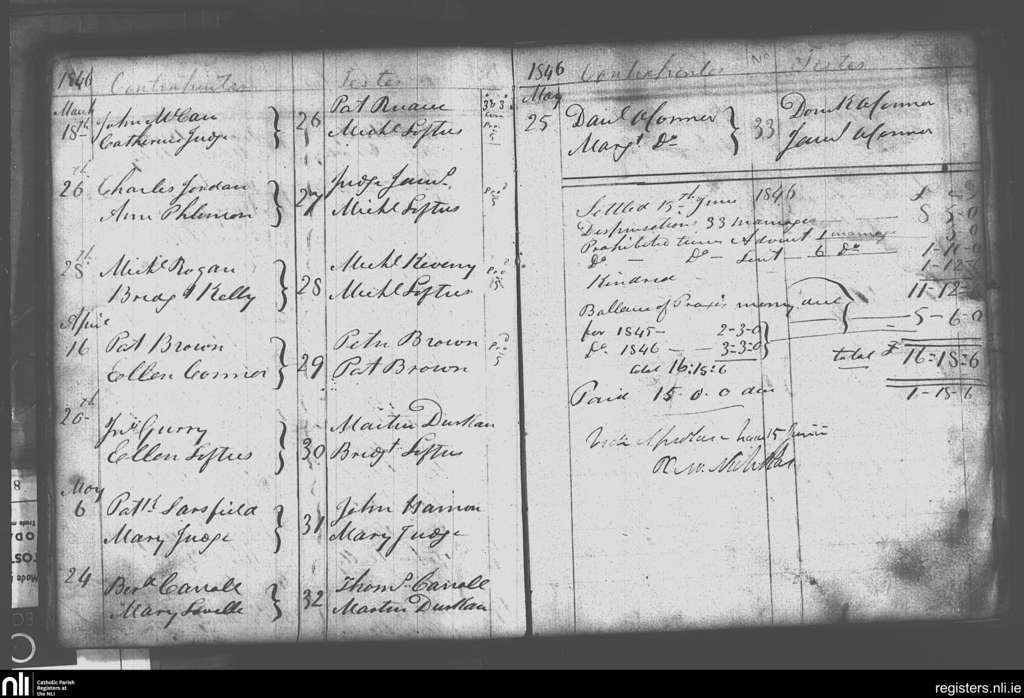 1846 Contrahentes Testes
March 18th John McCan } 26 Pat Ruane
Catherine Judge Michl Loftus
26th Charles Jordan 27 Judge Jams.
Ann Phlimon Michl Loftus
28th Michl Rogan } 28 Michl Keveny
Bridgt Kelly Michl Loftus
April
16 Pat Brown } 29 Petr Brown
Ellen Connor Pat Brown
20th Jno Gurry } 30 Martin Durkan
Ellen Loftus Bridgt Loftus
May
6 Patk Sarsfield } 31 John Hannon
Mary Judge Mary Judge
24 Bern Carroll } 32 Thoms. Carroll
Mary Lavelle Martin Durkan
1846 Contrahentes No Testes
May
25 Danl OConnor } 33 Domk OConnor
Margt Do James OConnor
Settled 15th June 1846
Dispensations 33 marriages 5-0
Prohibited times Advent 1 marriage
Do - Do - Lent - 6 Do 1-10-0
Kindred 1-12-
11-12-
Ballance of Praxis money due } 5-6-0
for 1845- 2-3-0
Do 1846 - 3-3-0
total £ 16=18=6
total 16:18:6
Paid 15.0.0 due 1-18-6
15 Junii
nli Catholic Parish
Registers at
the NLI
registers.nli.ie